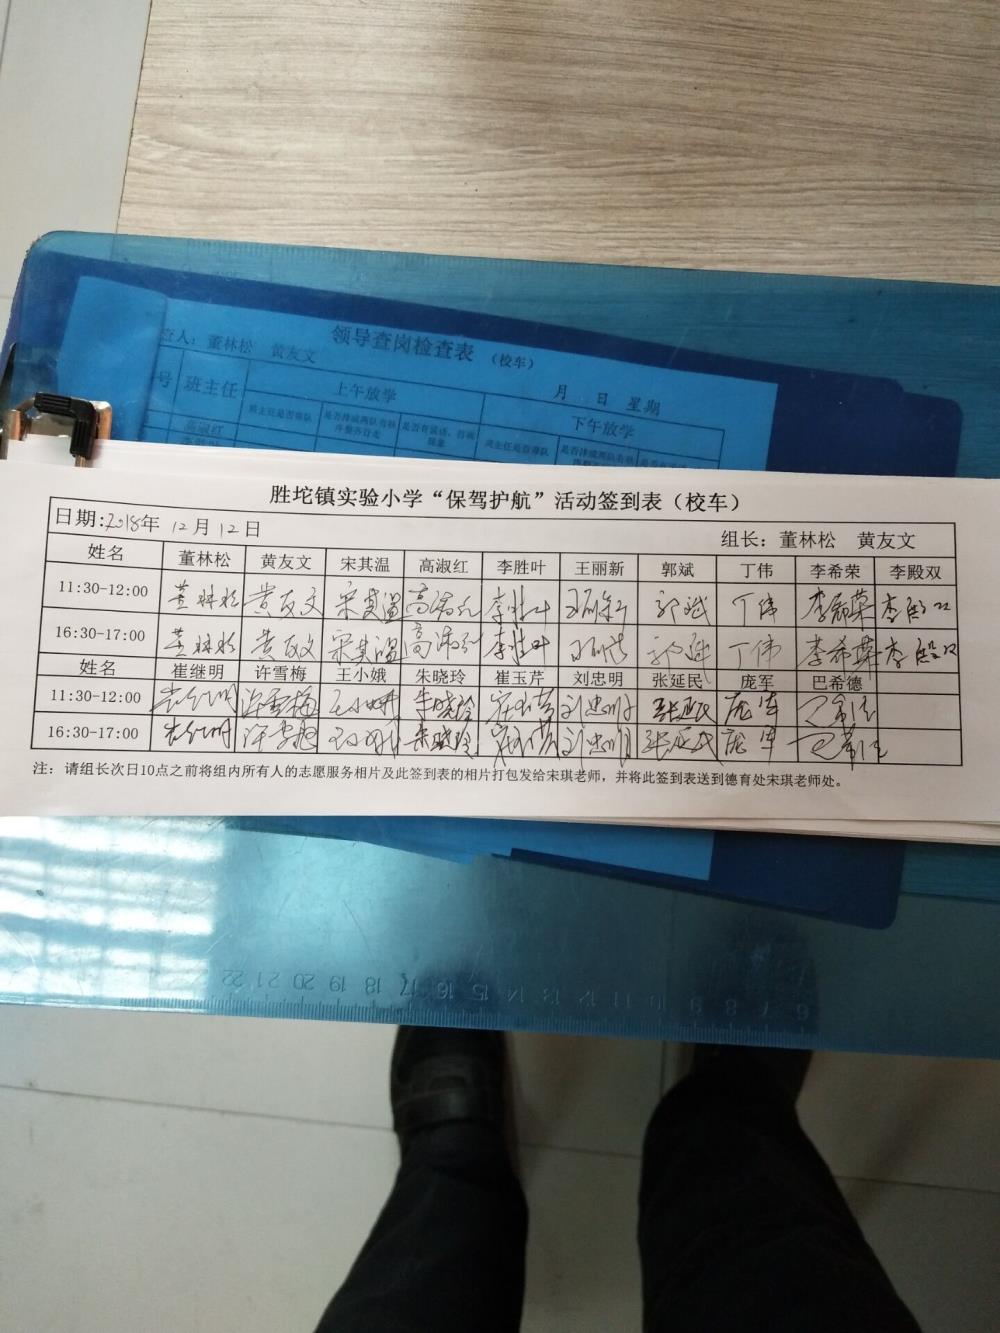 领导查岗检查表（校车）
查人：董林松 黄友文
月 日 星期
号 班主任 上午放学 下午放学
班主任是否带队
高淑红
胜坨镇实验小学“保驾护航”活动签到表（校车）
日期:2018年 12月 12日 组长：董林松 黄友文
姓名 董林松 黄友文 宋其温 高淑红 李胜叶 王丽新 郭斌 丁伟 李希荣 李殿双
11:30-12:00 董林松 黄友文 宋其温 高淑红 李胜叶 王丽新 郭斌 丁伟 李希荣 李殿双
16:30-17:00 董林松 黄友文 宋其温 高淑红 李胜叶 王丽新 郭斌 丁伟 李希荣 李殿双
姓名 崔继明 许雪梅 王小娥 朱晓玲 崔玉芹 刘忠明 张延民 庞军 巴希德
11:30-12:00 崔继明 许雪梅 王小娥 朱晓玲 崔玉芹 刘忠明 张延民 庞军 巴希德
16:30-17:00 崔继明 许雪梅 王小娥 朱晓玲 崔玉芹 刘忠明 张延民 庞军 巴希德
注：请组长次日10点之前将组内所有人的志愿服务相片及此签到表的相片打包发给宋琪老师，并将此签到表送到德育处宋琪老师处。
22 21 20 19 18 17 16 15 14 13 12 11 10 9 8 7 6